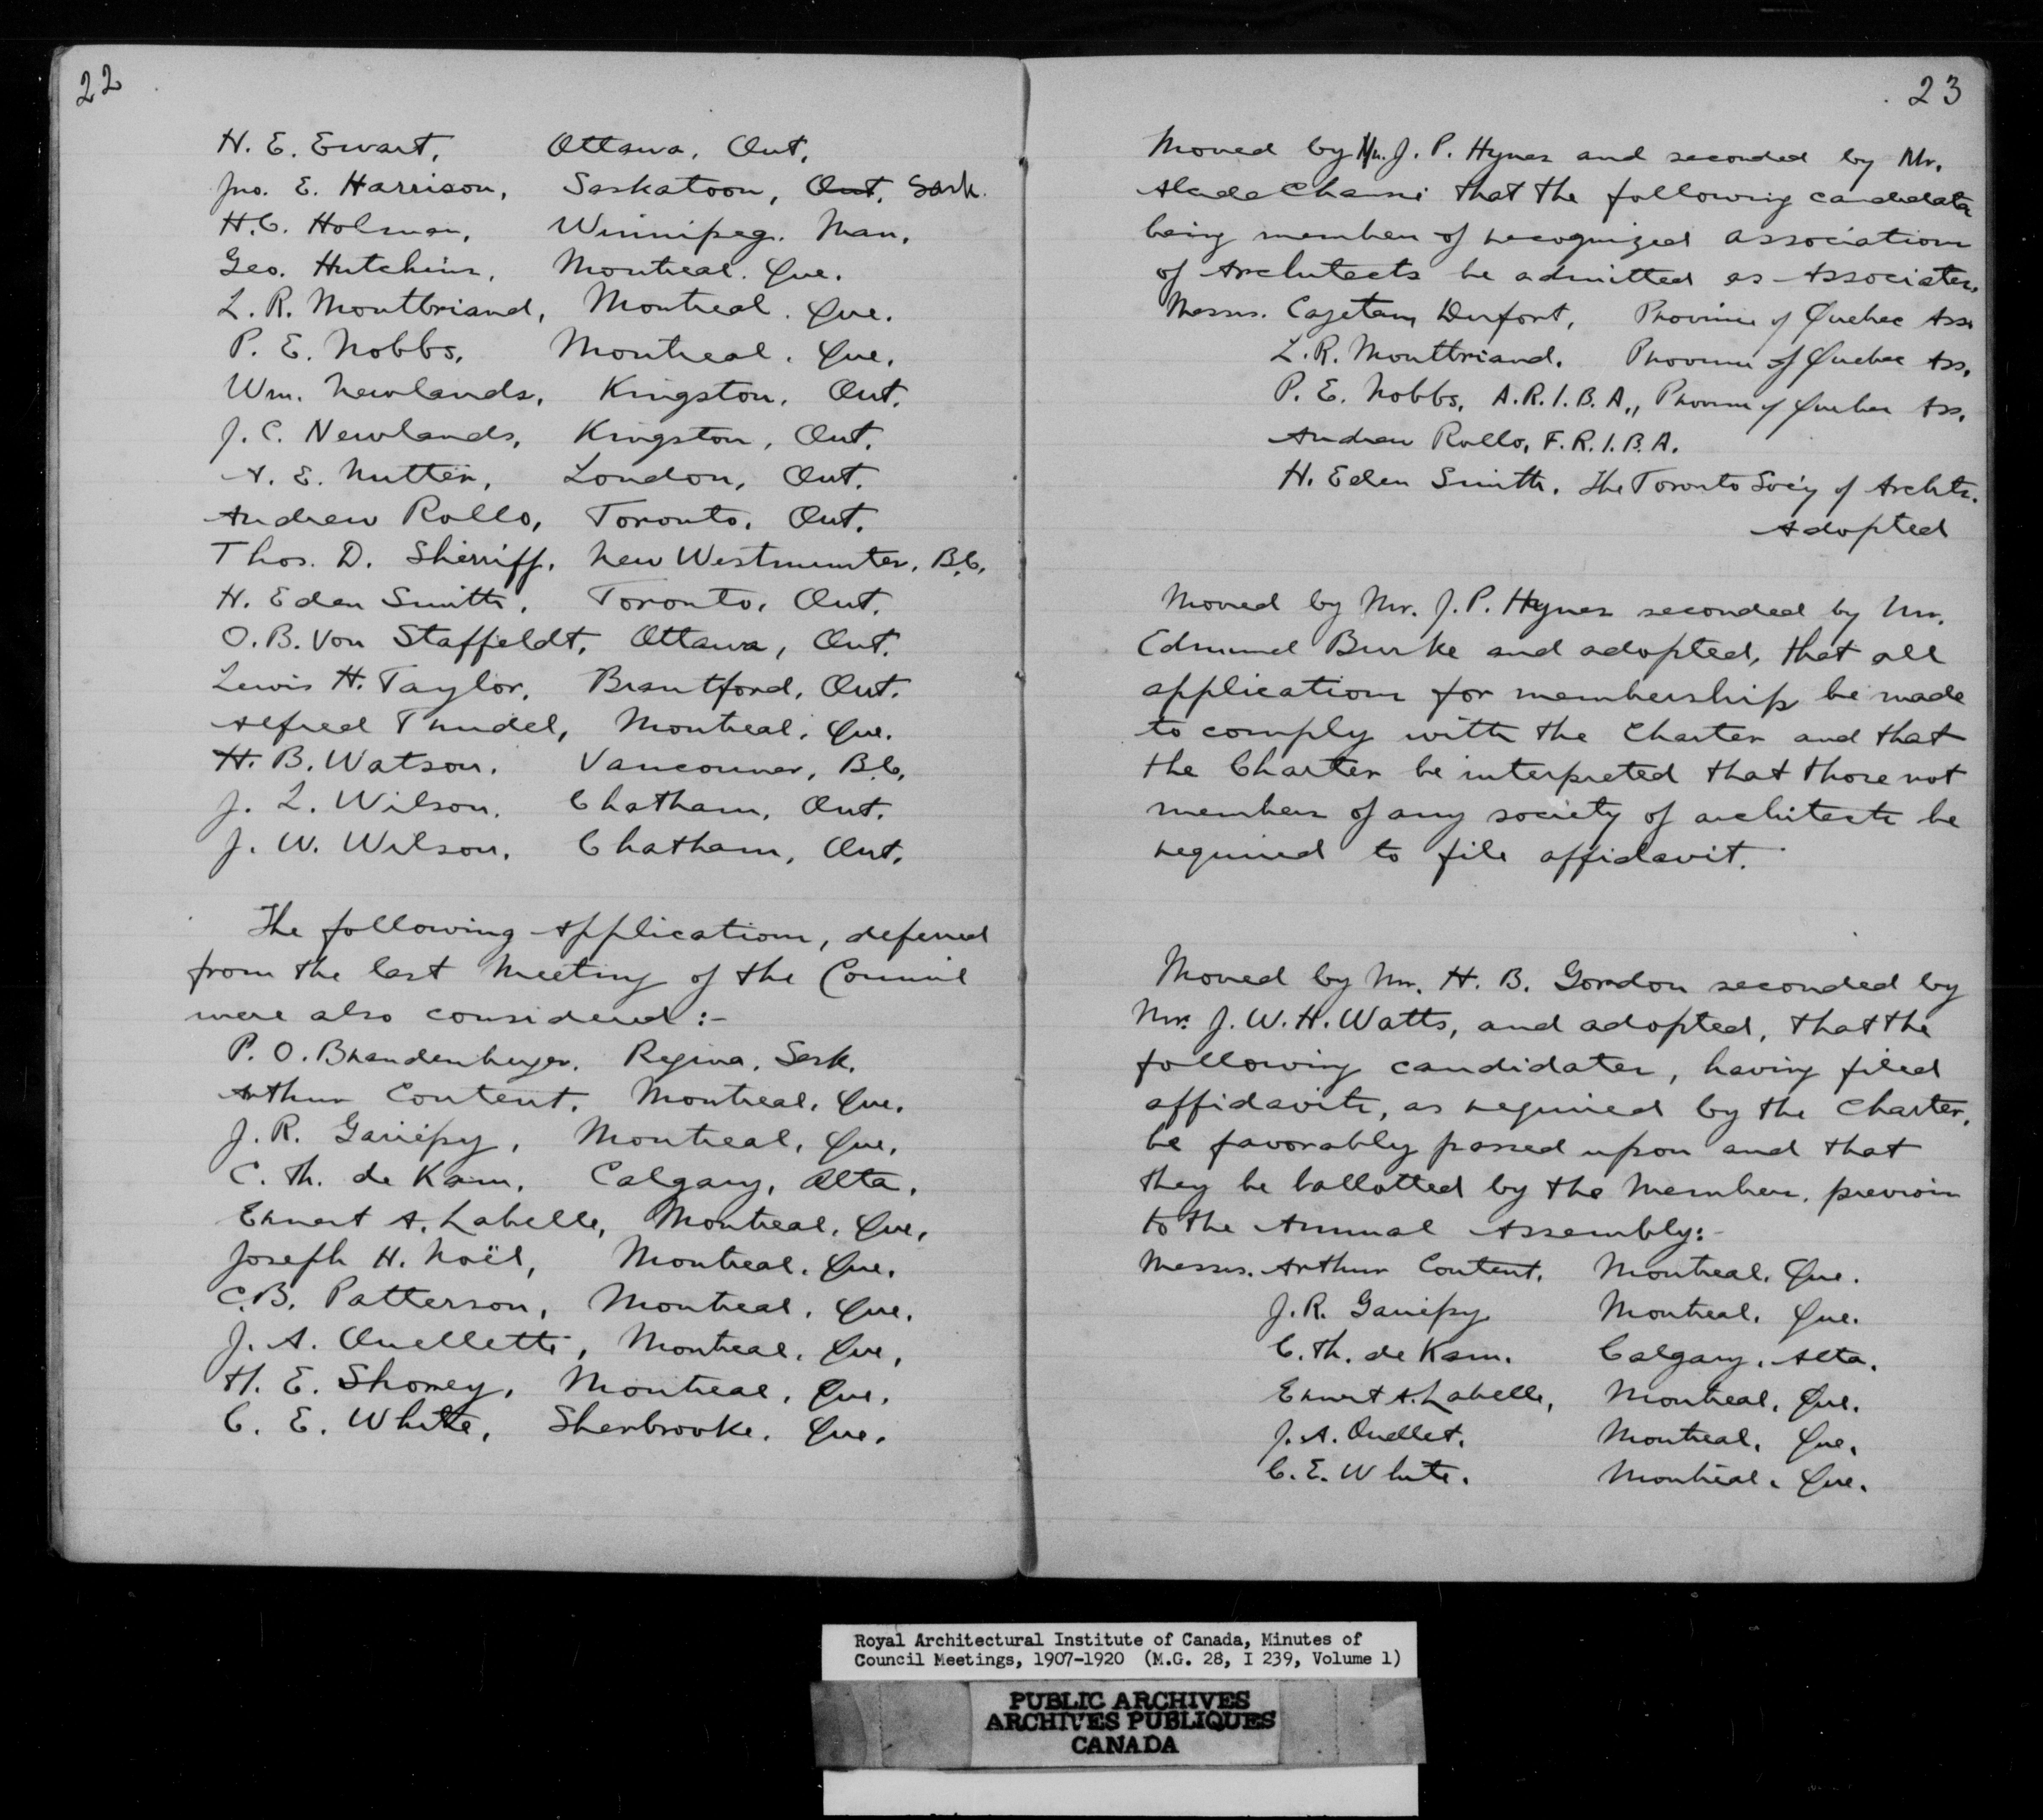 22
H. E. Ewart, Ottawa, Ont.
Jno. E. Harrison, Saskatoon, Ont. Sask.
H.C. Holman, Winnipeg. Man.
Geo. Hutchins, Montreal. Que.
L. R. Montbriand, Montreal. Que.
P. E. Nobbs, Montreal. Que.
Wm. Newlands, Kingston, Ont.
J. C. Newlands, Kingston, Ont.
A. E. Nutter, London, Ont.
Andrew Rollo, Toronto, Ont.
Thos. D. Sherriff, New Westminster, B.C.
H. Eden Smith, Toronto, Ont.
O. B. Von Staffeldt, Ottawa, Ont.
Lewis H. Taylor, Brantford, Ont.
Alfred Trudel, Montreal, Que.
H. B. Watson, Vancouver, B.C.
J. L. Wilson, Chatham, Ont.
J. W. Wilson, Chatham, Ont.
The following Applications, deferred
from the last Meeting of the Council
were also considered:-
P. O. Brandenberger, Regina, Sask.
Arthur Content, Montreal, Que.
J. R. Gariépy, Montreal, Que.
C. Th. de Kam, Calgary, Alta.
Ernest A. Labelle, Montreal, Que.
Joseph H. Noël, Montreal, Que.
C.B. Patterson, Montreal, Que.
J. A. Ouellette, Montreal, Que.
H. E. Shorey, Montreal, Que.
C. E. White, Sherbrooke, Que.
23
Moved by Mr. J. P. Hynes and seconded by Mr.
Alcide Chaussé that the following candidates
being members of recognized associations
of Architects be admitted as Associates.
Messrs. Cajetan Dufort, Province of Quebec Ass.
L. R. Montbriand. Province of Quebec Ass.
P. E. Nobbs, A.R.I.B.A., Province of Quebec Ass.
Andrew Rollo, F.R.I.B.A.
H. Eden Smith, The Toronto Soc'y of Archts.
Adopted
Moved by Mr. J. P. Hynes seconded by Mr.
Edmund Burke and adopted, that all
applications for membership be made
to comply with the Charter and that
the Charter be interpreted that those not
members of any society of architects be
required to file affidavit.
Moved by Mr. H. B. Gordon seconded by
Mr. J. W. H. Watts, and adopted, that the
following candidates, having filed
affidavits, as required by the Charter,
be favorably passed upon and that
they be ballotted by the Members, previous
to the Annual Assembly:-
Messrs. Arthur Content, Montreal, Que.
J. R. Gariépy Montreal, Que.
C. Th. de Kam. Calgary, Alta.
Ernest A. Labelle, Montreal, Que.
J. A. Ouellet, Montreal, Que.
C. E. White. Montreal, Que.
Royal Architectural Institute of Canada, Minutes of
Council Meetings, 1907-1920 (M.G. 28, I 239, Volume 1)
PUBLIC ARCHIVES
ARCHIVES PUBLIQUES
CANADA